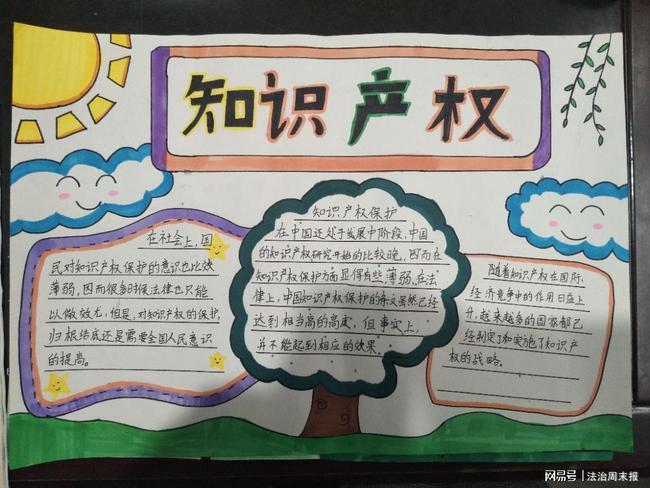 知识产权
在社会上,国
民对知识产权保护的意识也比较
薄弱,因而很多时候法律也只能
以做效尤,但是,对知识产权的保护,
归根结底还是需要全国人民意识
的提高。
知识产权保护
在中国还处于发展中阶段,中国
的知识产权研究开始的比较晚,因而在
知识产权保护方面显得有些薄弱,在法
律上,中国知识产权保护的条文虽然已经
达到相当高的高度,但事实上,
并不能起到相应的效果。
随着知识产权在国际
经济竞争中的作用日益上
升,越来越多的国家都已
经制定了和实施了知识产
权的战略。
网易号 | 法治周末报